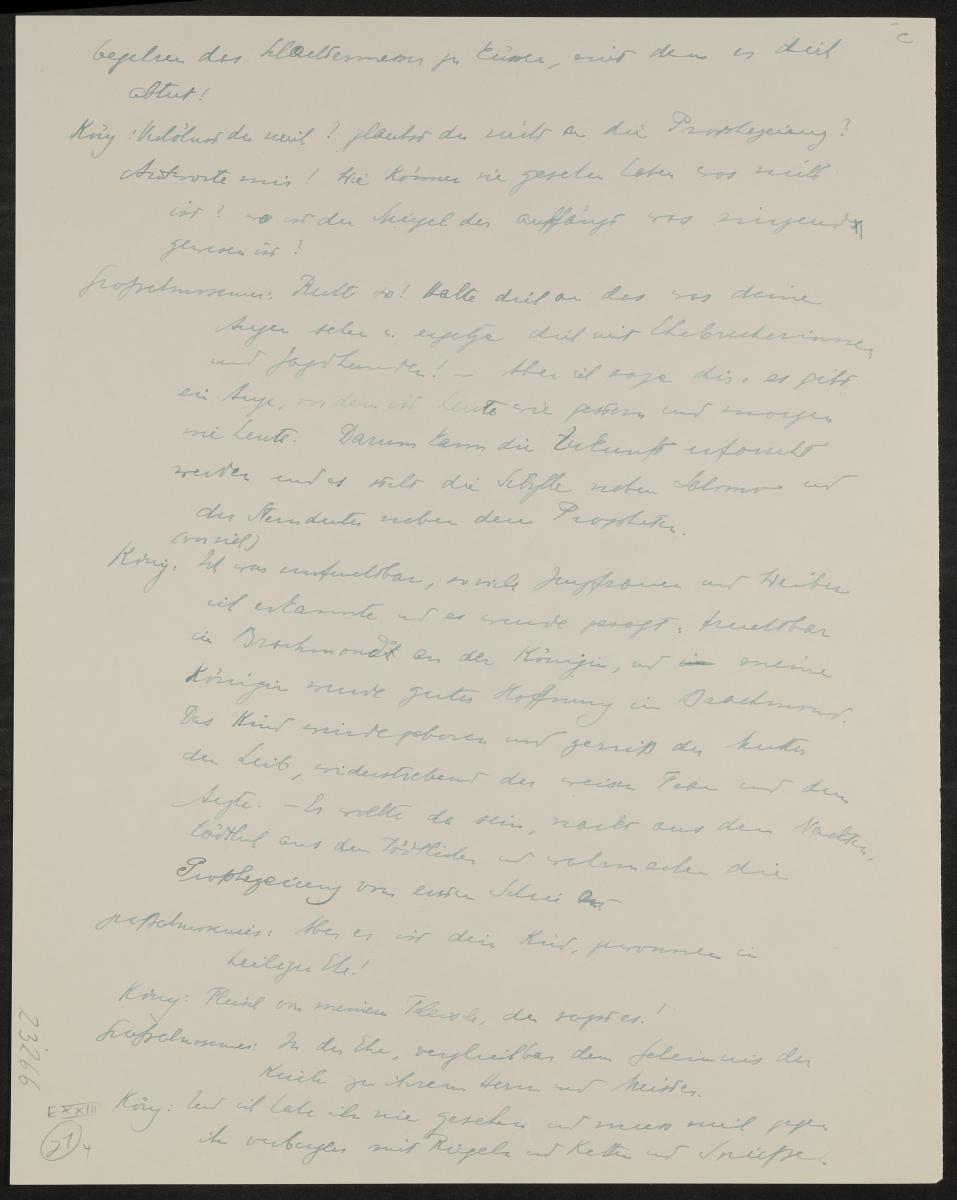 c
begehren das Schlachtmesser zu küssen, mit dem es dich
abtut!
König: Verhöhnst du mich? glaubst du nicht an die Prophezeiung?
Antworte mir! Wie können sie gesehen haben was nicht
ist? wo ist der Spiegel der auffängt was nirgends
gewesen ist?
Großalmosenier: Recht so! Halte dich an das was deine
Augen sehen u. ergetze dich mit Ehebrecherinnen
und Jagdhunden! – Aber ich sage dir: es gibt
ein Auge, vor dem ist heute wie gestern und morgen
wie heute. Darum kann die Zukunft erforscht
werden und es steht die Sibylle neben Salomo und
der Sterndeuter neben dem Propheten.
(vor sich)
König: Ich war unfruchtbar, so viele Jungfrauen und Weiber
ich erkannte und es wurde gesagt: fruchtbar
im Brachmondt an der Königin, und meine
Königin wurde guter Hoffnung im Brachmond.
Das Kind wurde geboren und zerriß der Mutter
den Leib, widerstrebend der weisen Frau und dem
Arzte. – Es wollte da sein, nackt aus dem Nackten,
tödtlich aus dem Tödtlichen und wahrmachen die
Prophezeiung vom ersten Schrei an –
Großalmosenier: Aber es ist dein Kind, gewonnen in
heiliger Ehe!
König: Fleisch von meinem Fleische, du sagst es!
Großalmosenier: In der Ehe, vergleichbar dem Geheimnis der
Kirche zu ihrem Herrn und Meister.
König: Und ich habe ihn nie gesehen und muss mich gegen
ihn verbergen mit Riegeln und Ketten und Spießen
23266
EXXIII
21
4